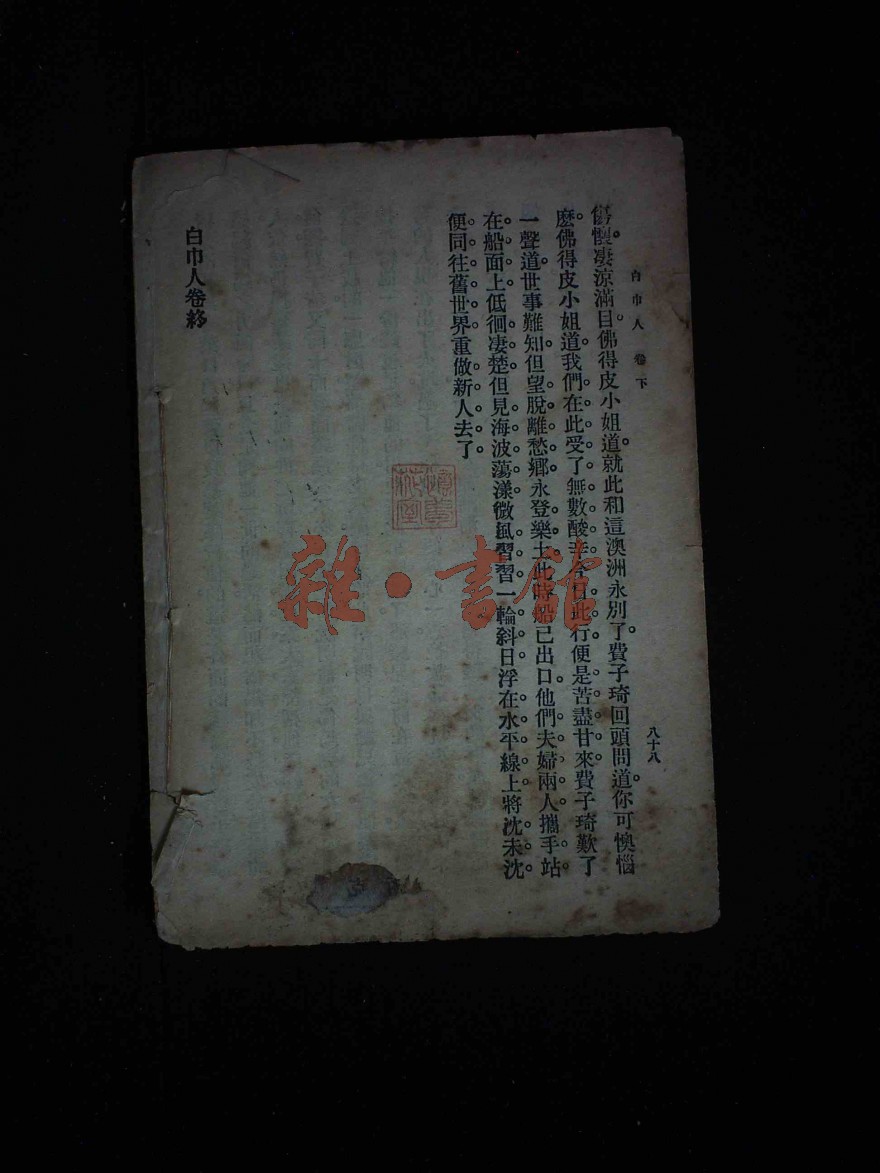 白巾人 卷下
八十八
凄涼滿目佛得皮小姐道就此和這澳洲永別了。費子琦回頭問道你可懊惱
麽佛得皮小姐道我們在此受了無數酸辛今日此行便是苦盡甘來費子琦歎了
一聲道世事難知但望脫離愁鄉永登樂土此時船已出口他們夫婦兩人攜手站
在船面上低徊凄楚但見海波蕩漾微風習習一輪斜日浮在水平線上將沈未沈
便同往舊世界重做新人去了
白巾人卷終
雜·書館